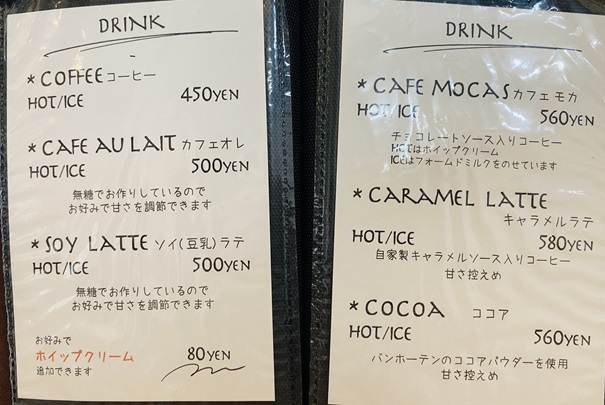 DRINK
* COFFEE コーヒー
HOT/ICE 450YEN
* CAFE AU LAIT カフェオレ
HOT/ICE 500YEN
無糖でお作りしているので
お好みで甘さを調節できます
* SOY LATTE ソイ(豆乳)ラテ
HOT/ICE 500YEN
無糖でお作りしているので
お好みで甘さを調節できます
お好みで
ホイップクリーム 80YEN
追加できます
DRINK
* CAFE MOCAS カフェ モカ
HOT/ICE 560YEN
チョコレートソース入りコーヒー
HOTはホイップクリーム
ICEはフォームドミルクをのせています
* CARAMEL LATTE
キャラメルラテ
HOT/ICE 580YEN
自家製キャラメルソース入りコーヒー
甘さ控えめ
* COCOA ココア
HOT/ICE 560YEN
バンホーテンのココアパウダーを使用
甘さ控えめ